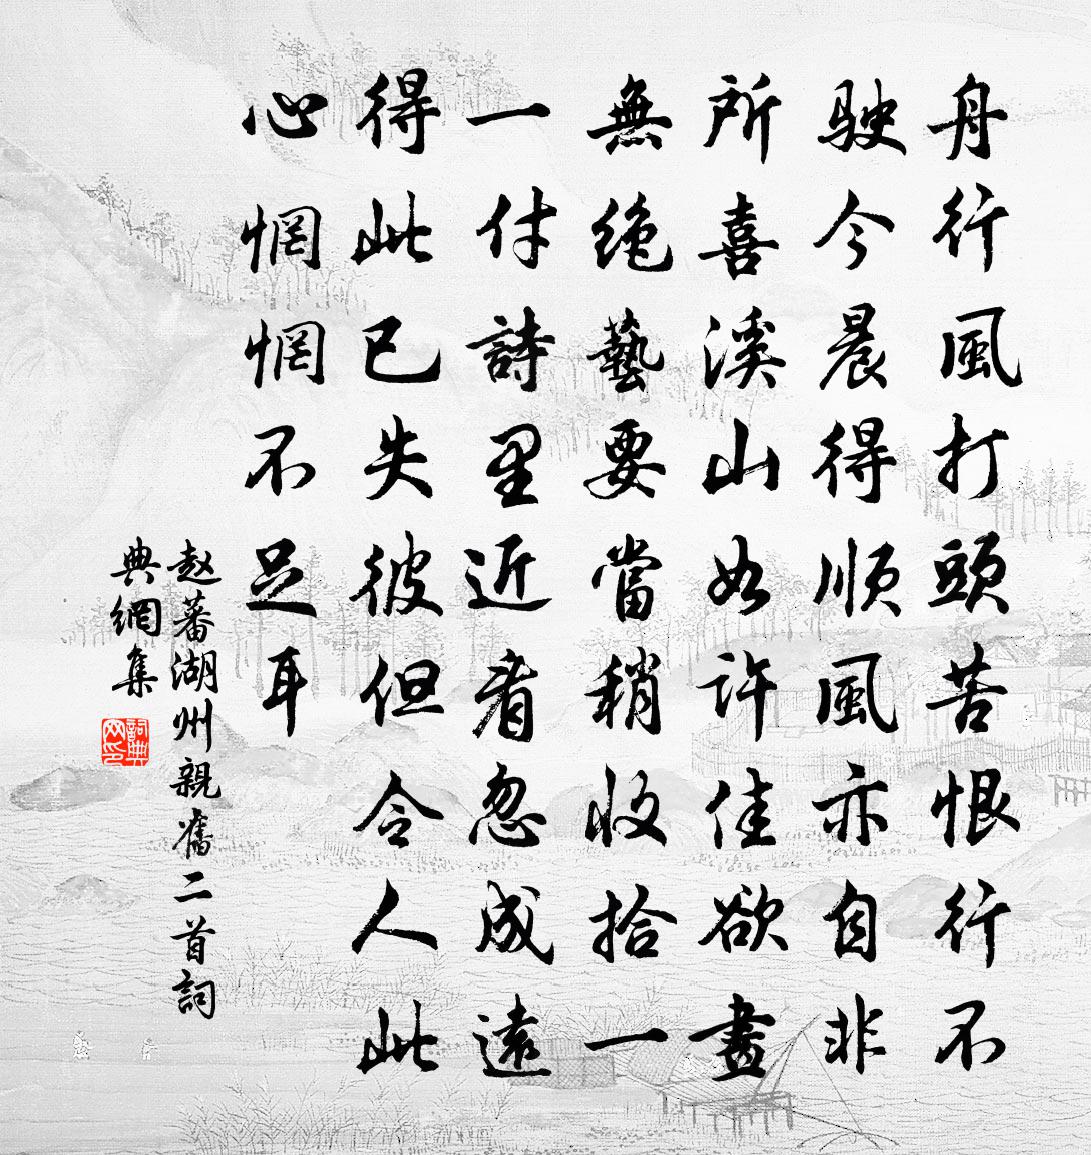 舟行風打頭苦恨行不
駛今晨得順風亦自非
所喜溪山如許佳欲畫
無絕藝要當稍收拾一
一付詩里近看忽成遠
得此已失彼但令人此
心惘惘不足耳
赵蕃湖州親舊二首詞
典網集
詞典网印